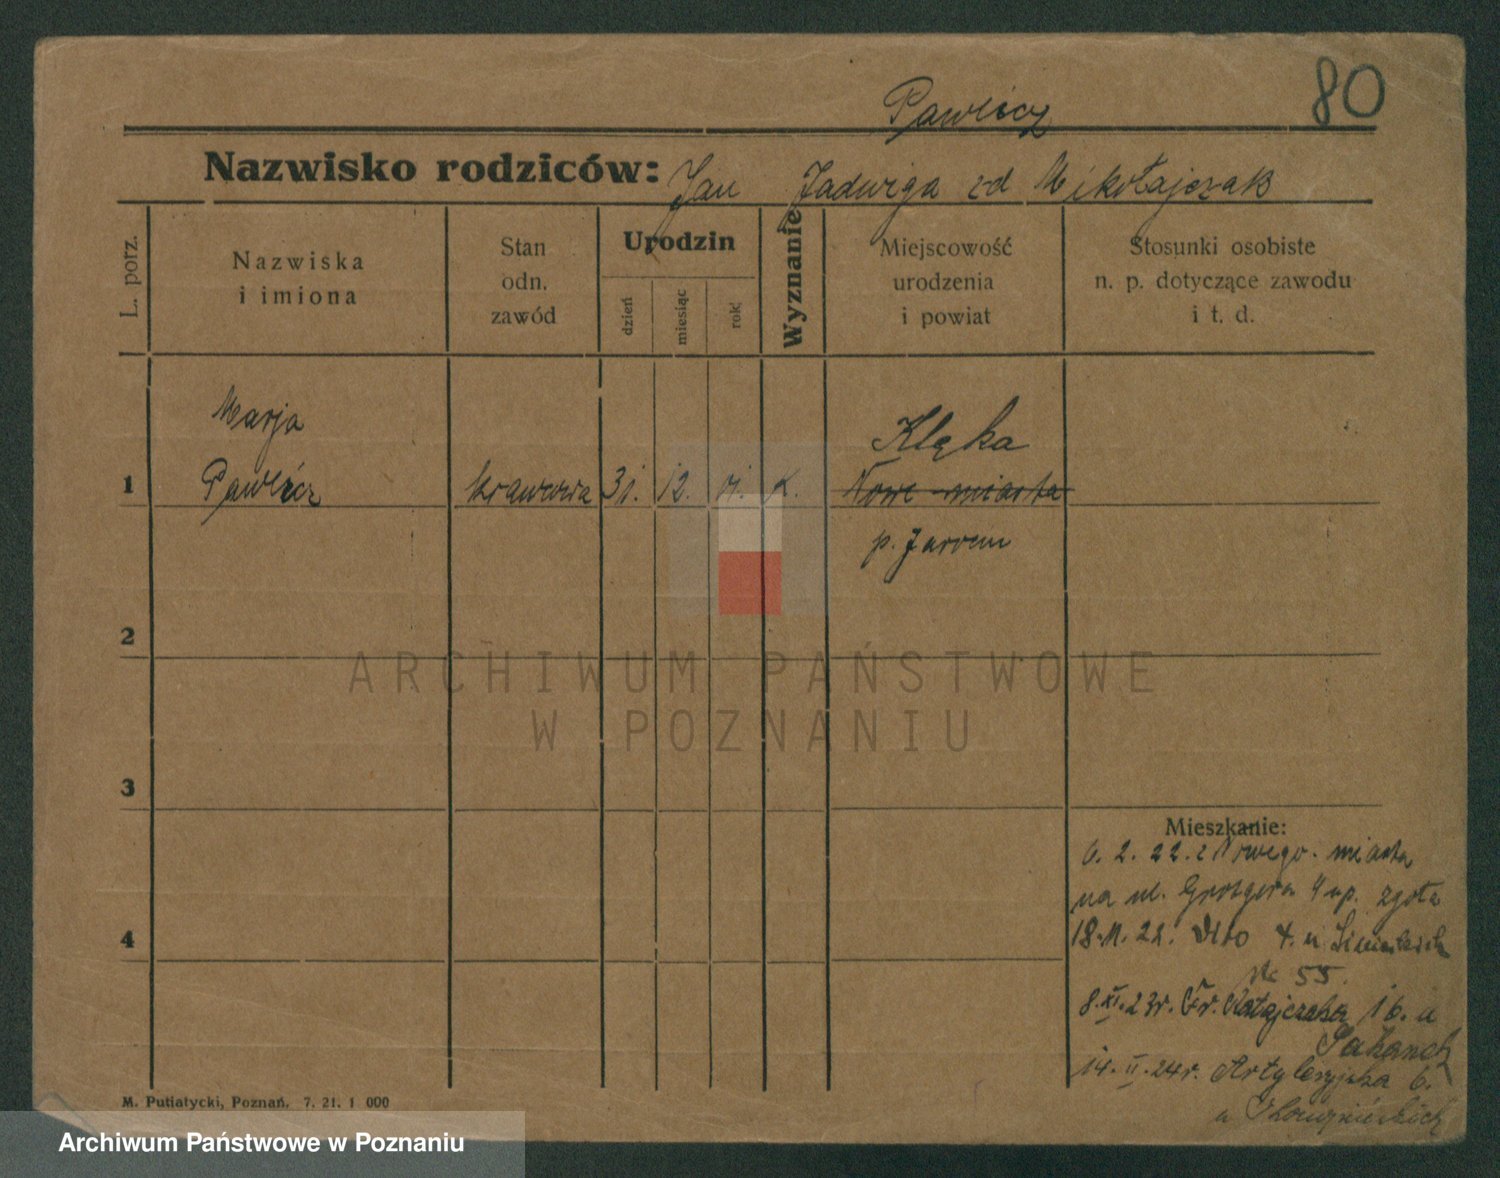 80
Pawlicz
Nazwisko rodziców: Jan Jadwiga zd Mikołajczak
L. porz.
Nazwiska
i imiona
Stan
odn.
zawód
Urodzin
dzień
miesiąc
rok
Wyznanie
Miejscowość
urodzenia
i powiat
Stosunki osobiste
n. p. dotyczące zawodu
i t. d.
Marja
Klęka
1 Pawlicz krawcowa 31. 12. K. Nowe-miasta
p. Jarocin
2
ARCHIWUM PAŃSTWOWE
W POZNANIU
3
Mieszkanie:
6. 2. 22. z Nowego-miasta
na ul. 4 np.
18. 11. 22. Dito 4. u
55.
8. XI. 23r. Fr. Ratajczaka 16. u
4
14. II. 24r. Artyleryjska 6.
u
M. Putiatycki, Poznań. 7. 21. 1 000
Archiwum Państwowe w Poznaniu